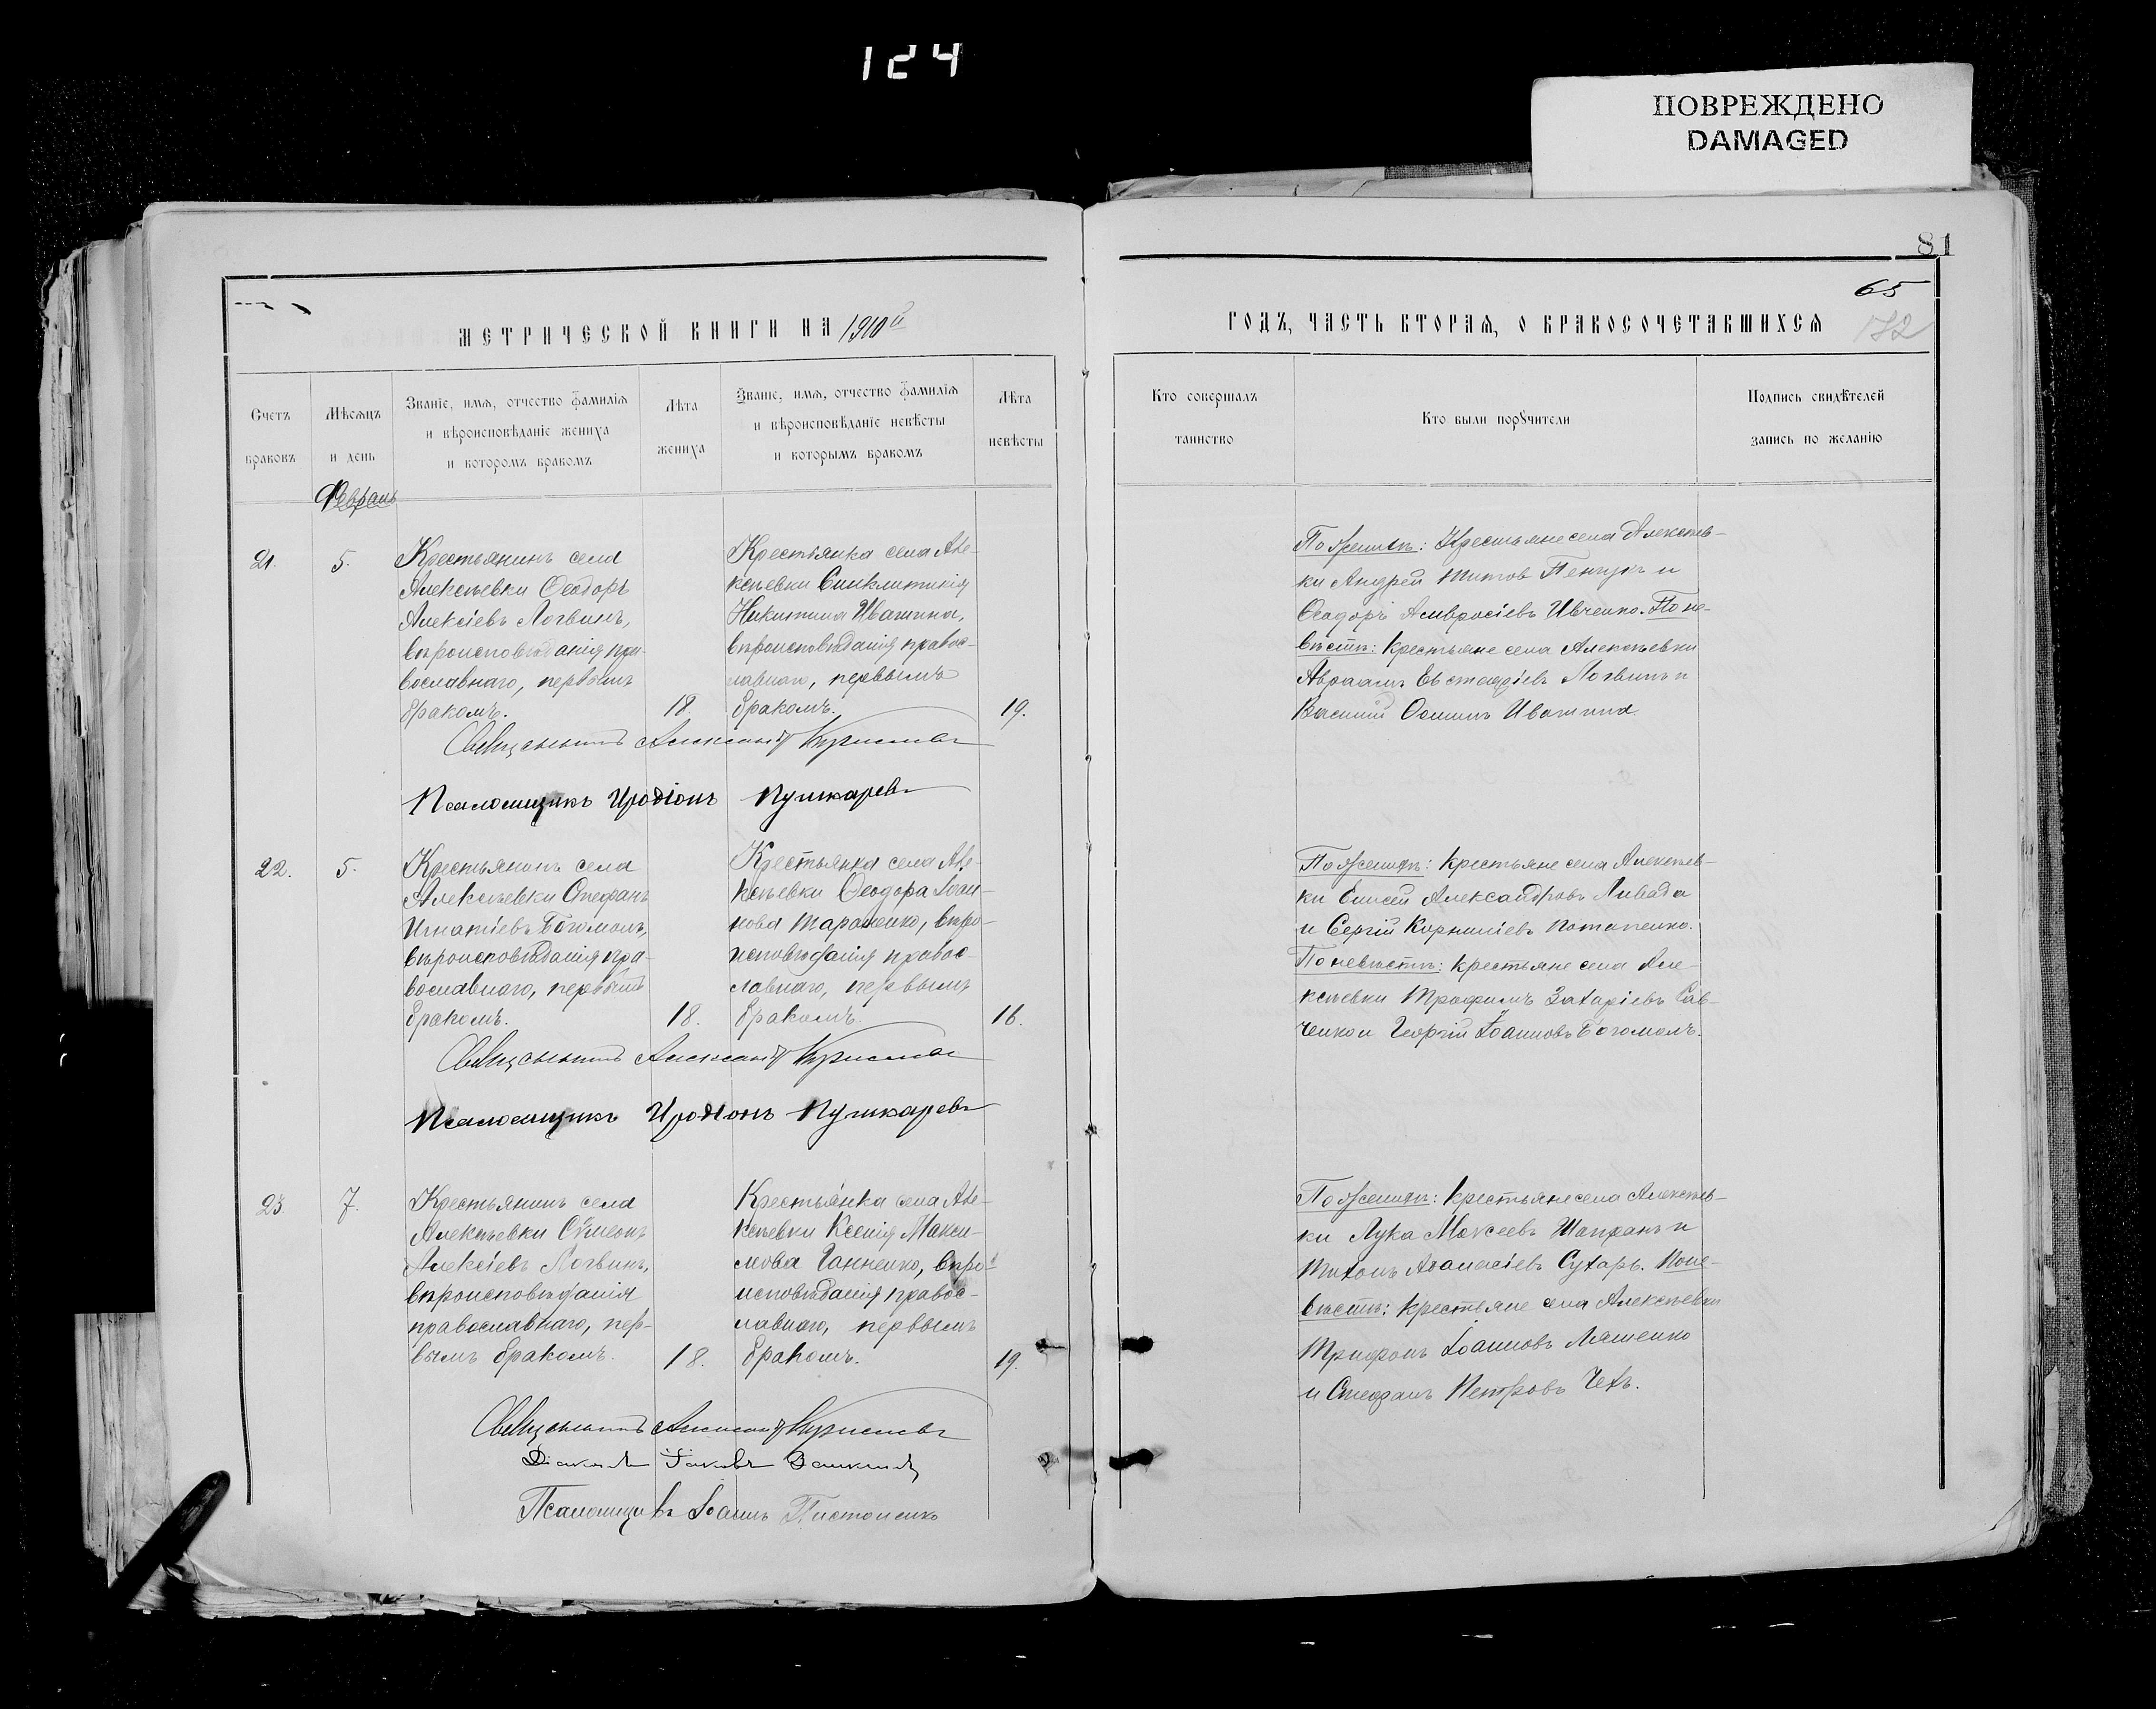 124
ПОВРЕЖДЕНО
DAMAGED
81
65
132
МЕТРИЧЕСКОЙ КНИГИ НА 1910й
ГОДЪ, ЧАСТЬ ВТОРАЯ, О БРАКОСОЧЕТАВШИХСЯ
Счетъ
браковъ
Мѣсяцъ
и день
Званіе, имя, отчество фамилія
и вѣроисповѣданіе жениха
и которомъ бракомъ
Лѣта
жениха
Званіе, имя, отчество фамилія
и вѣроисповѣданіе невѣсты
и которымъ бракомъ
Лѣта
невѣсты
Кто совершалъ
таинство
Кто были порѹчители
Подпись свидѣтелей
запись по желанію
Февраль
21.
5.
Крестьянинъ села
Алексѣевки Ѳеодоръ
Алексіевъ Логвинъ,
вѣроисповѣданія пра-
вославнаго, первымъ
бракомъ.
18.
Крестьянка села Але-
ксѣевки Синклитикія
Никитина Ивашина,
вѣроисповѣданія правос-
лавнаго, первымъ
бракомъ.
19.
По женихѣ: Крестьяне села Алексѣев-
ки Андрей Титовъ Пенчукъ и
Ѳеодоръ Амвросіевъ Ивченко. По не-
вѣстѣ: крестьяне села Алексѣевки
Авраамъ Евстафіевъ Логвинъ и
Василій Ѳоминъ Ивашина.
Священникъ Александръ
Псаломщикъ Иродіонъ Пушкаревъ
22.
5.
Крестьянинъ села
Алексѣевки Стефанъ
Игнатіевъ Богомолъ,
вѣроисповѣданія пра-
вославнаго, первымъ
бракомъ.
18.
Крестьянка села Але-
ксѣевки Ѳеодора Іоан-
нова Тараненко, вѣро-
исповѣданія правос-
лавнаго, первымъ
бракомъ.
16.
По женихѣ: крестьяне села Алексѣев-
ки Елисей Александровъ Ливада
и Сергій Корниліевъ Потапенко.
По невѣстѣ: крестьяне села Але-
ксѣевки Трофимъ Захаріевъ Сав-
ченко и Георгій Іоанновъ Богомолъ.
Священникъ Александръ
Псаломщикъ Иродіонъ Пушкаревъ
23.
7.
Крестьянинъ села
Алексѣевки Сѵмеонъ
Алексіевъ Логвинъ,
вѣроисповѣданія
православнаго, пер-
вымъ бракомъ.
18.
Крестьянка села Але-
ксѣевки Ксенія Макси-
мова Ганненко, вѣро-
исповѣданія правос-
лавнаго, первымъ
бракомъ.
19.
По женихѣ: крестьяне села Алексѣев-
ки Лука Моисеевъ Шапранъ и
Тихонъ Аѳанасіевъ Сухарь. По не-
вѣстѣ: крестьяне села Алексѣевки
Трифонъ Іоанновъ Ляшенко
и Стефанъ Петровъ Чехъ.
Священникъ Александръ
Діаконъ Іаковъ
Псаломщикъ Іоаннъ